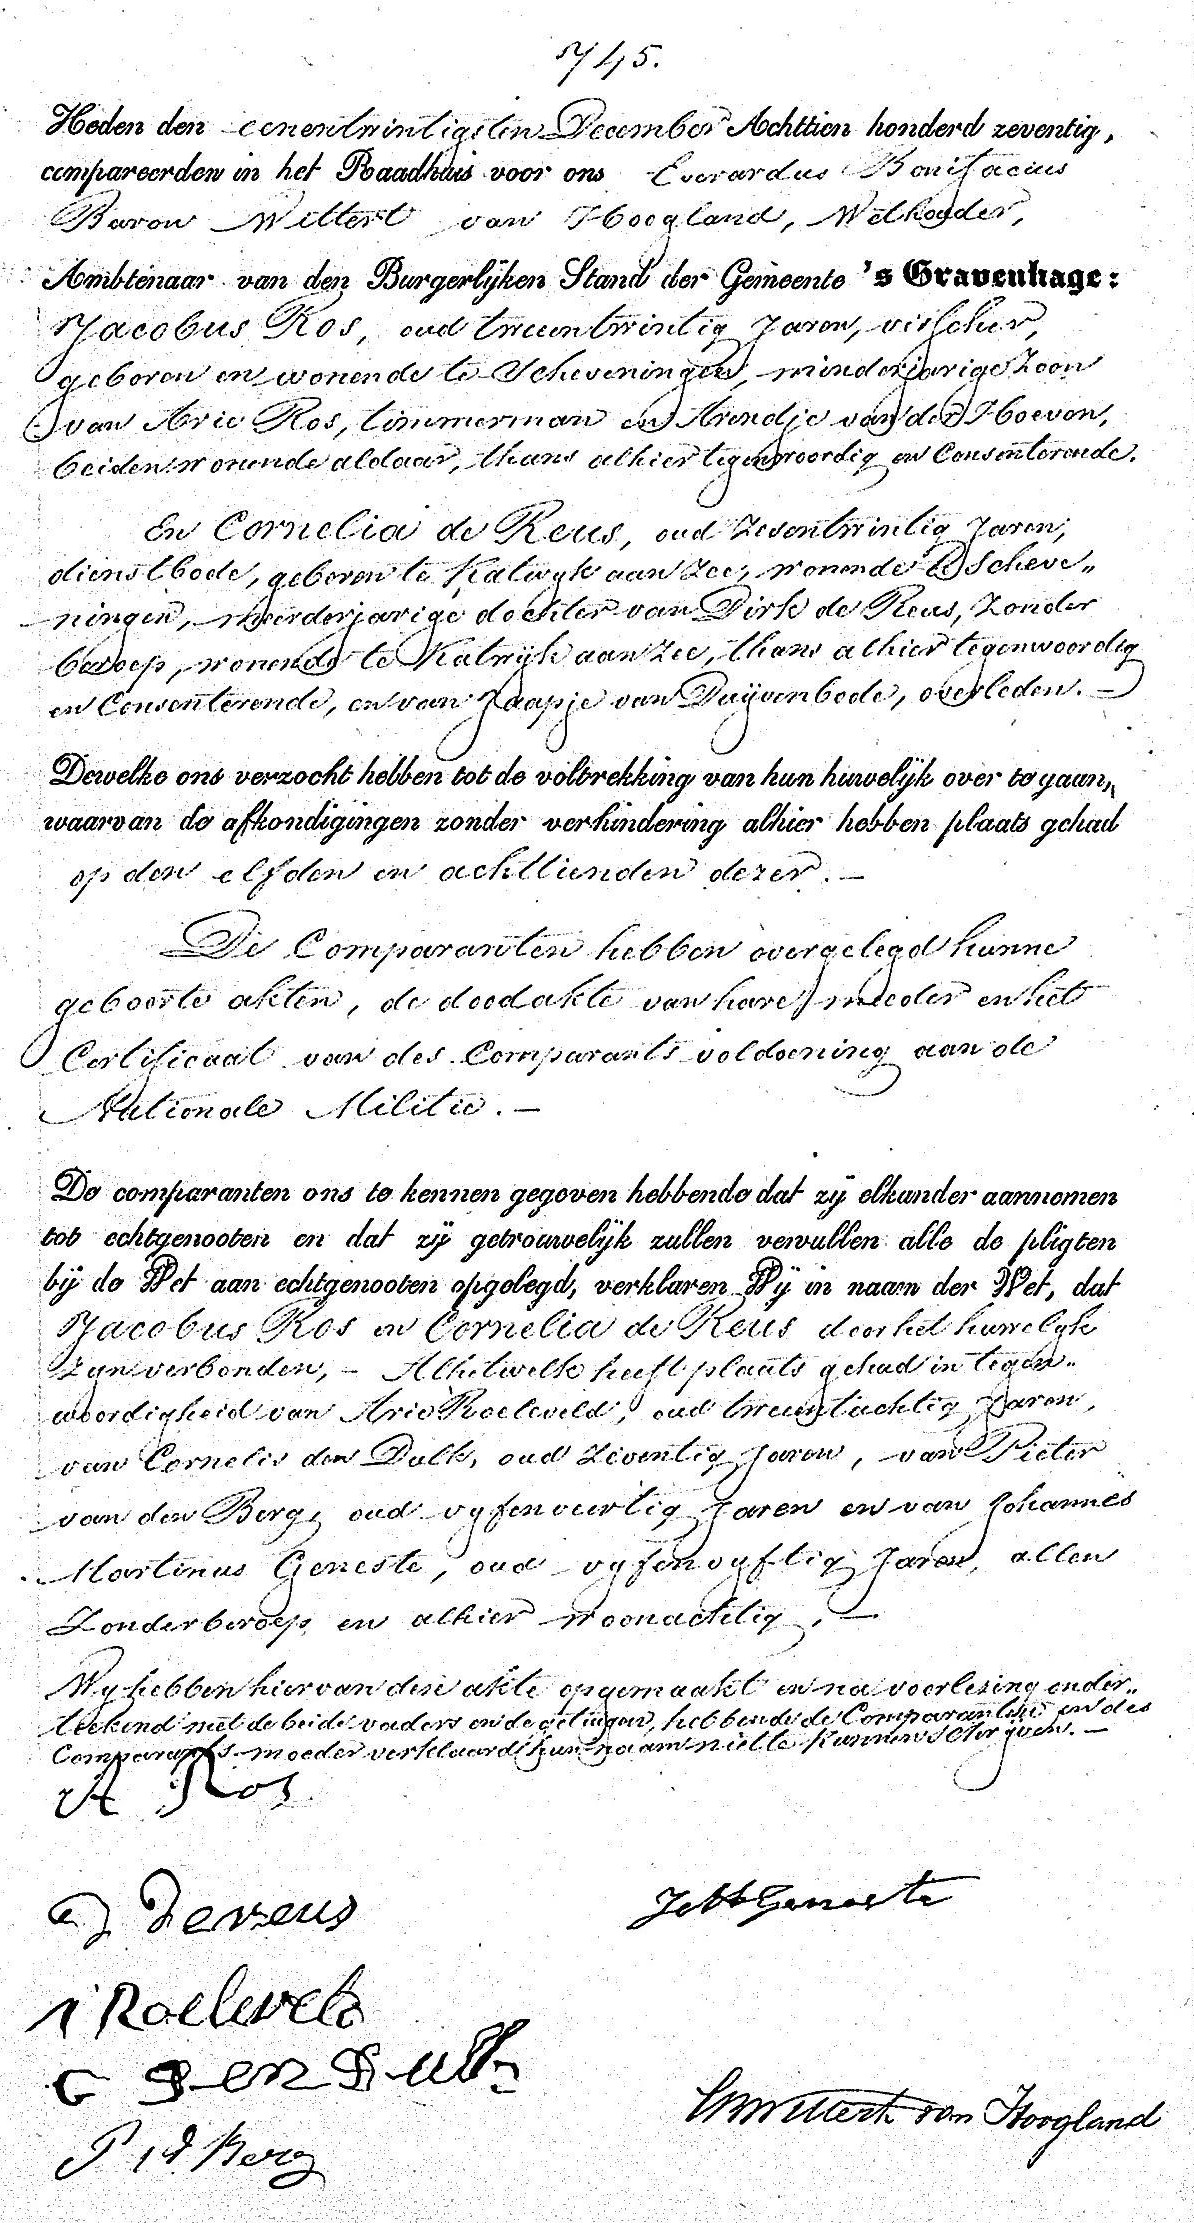 745.
Heden den eenentwintigsten December Achttien honderd zeventig,
compareerden in het Raadhuis voor ons Everardus Bonifacius
Baron Wittert van Hoogland, Wethouder,
Ambtenaar van den Burgerlijken Stand der Gemeente 's Gravenhage:
Jacobus Ros, oud tweeentwintig Jaren, visscher,
geboren en wonende te Scheveningen, minderjarige Zoon
van Arie Ros, timmerman en Arendje van der Hoeven,
beiden wonende aldaar, thans alhier tegenwoordig en Consenterende.
En Cornelia de Reus, oud Zesentwintig Jaren,
dienstbode, geboren te Katwyk aan Zee, wonende te Scheve„
ningen, meerderjarige dochter van Dirk de Reus, Zonder
beroep, wonende te Katwijk aan Zee, thans alhier tegenwoordig
en Consenterende, en van Jaapje van Duijvenbode, overleden. —
Dewelke ons verzocht hebben tot de voltrekking van hun huwelijk over te gaan,
waarvan de afkondigingen zonder verhindering alhier hebben plaats gehad
op den elfden en achttienden dezer. —
De Comparanten hebben overgelegd hunne
geboorte akten, de doodakte van hare moeder en het
Certificaat van des Comparants voldoening aan de
Nationale Militie. —
De comparanten ons te kennen gegeven hebbende dat zij elkander aannemen
tot echtgenooten en dat zij getrouwelijk zullen vervullen alle de pligten
bij de Wet aan echtgenooten opgelegd, verklaren Wij in naam der Wet, dat
Jacobus Ros en Cornelia de Reus door het huwelyk
Zyn verbonden, – Alhetwelk heeft plaats gehad in tegen„
woordigheid van Arie Roeleveld, oud tweeentachtig Jaren,
van Cornelis den Dulk, oud Zeventig Jaren, van Pieter
van den Berg, oud vyfenveertig Jaren en van Johannes
Martinus Geneste, oud vyfenvyftig Jaren, allen
Zonder beroep en alhier woonachtig. —
Wy hebben hiervan deze akte opgemaakt en na voorlezing onder„
teekend met de beide vaders en de getuigen, hebbende de Comparanten en des
Comparants moeder verklaard hun naam niet te kunnen schryven. —
A Ros
D de reus
JM Geneste
A Roeleveld
C den Dulk
P v d Berg
EB Wittert van Hoogland